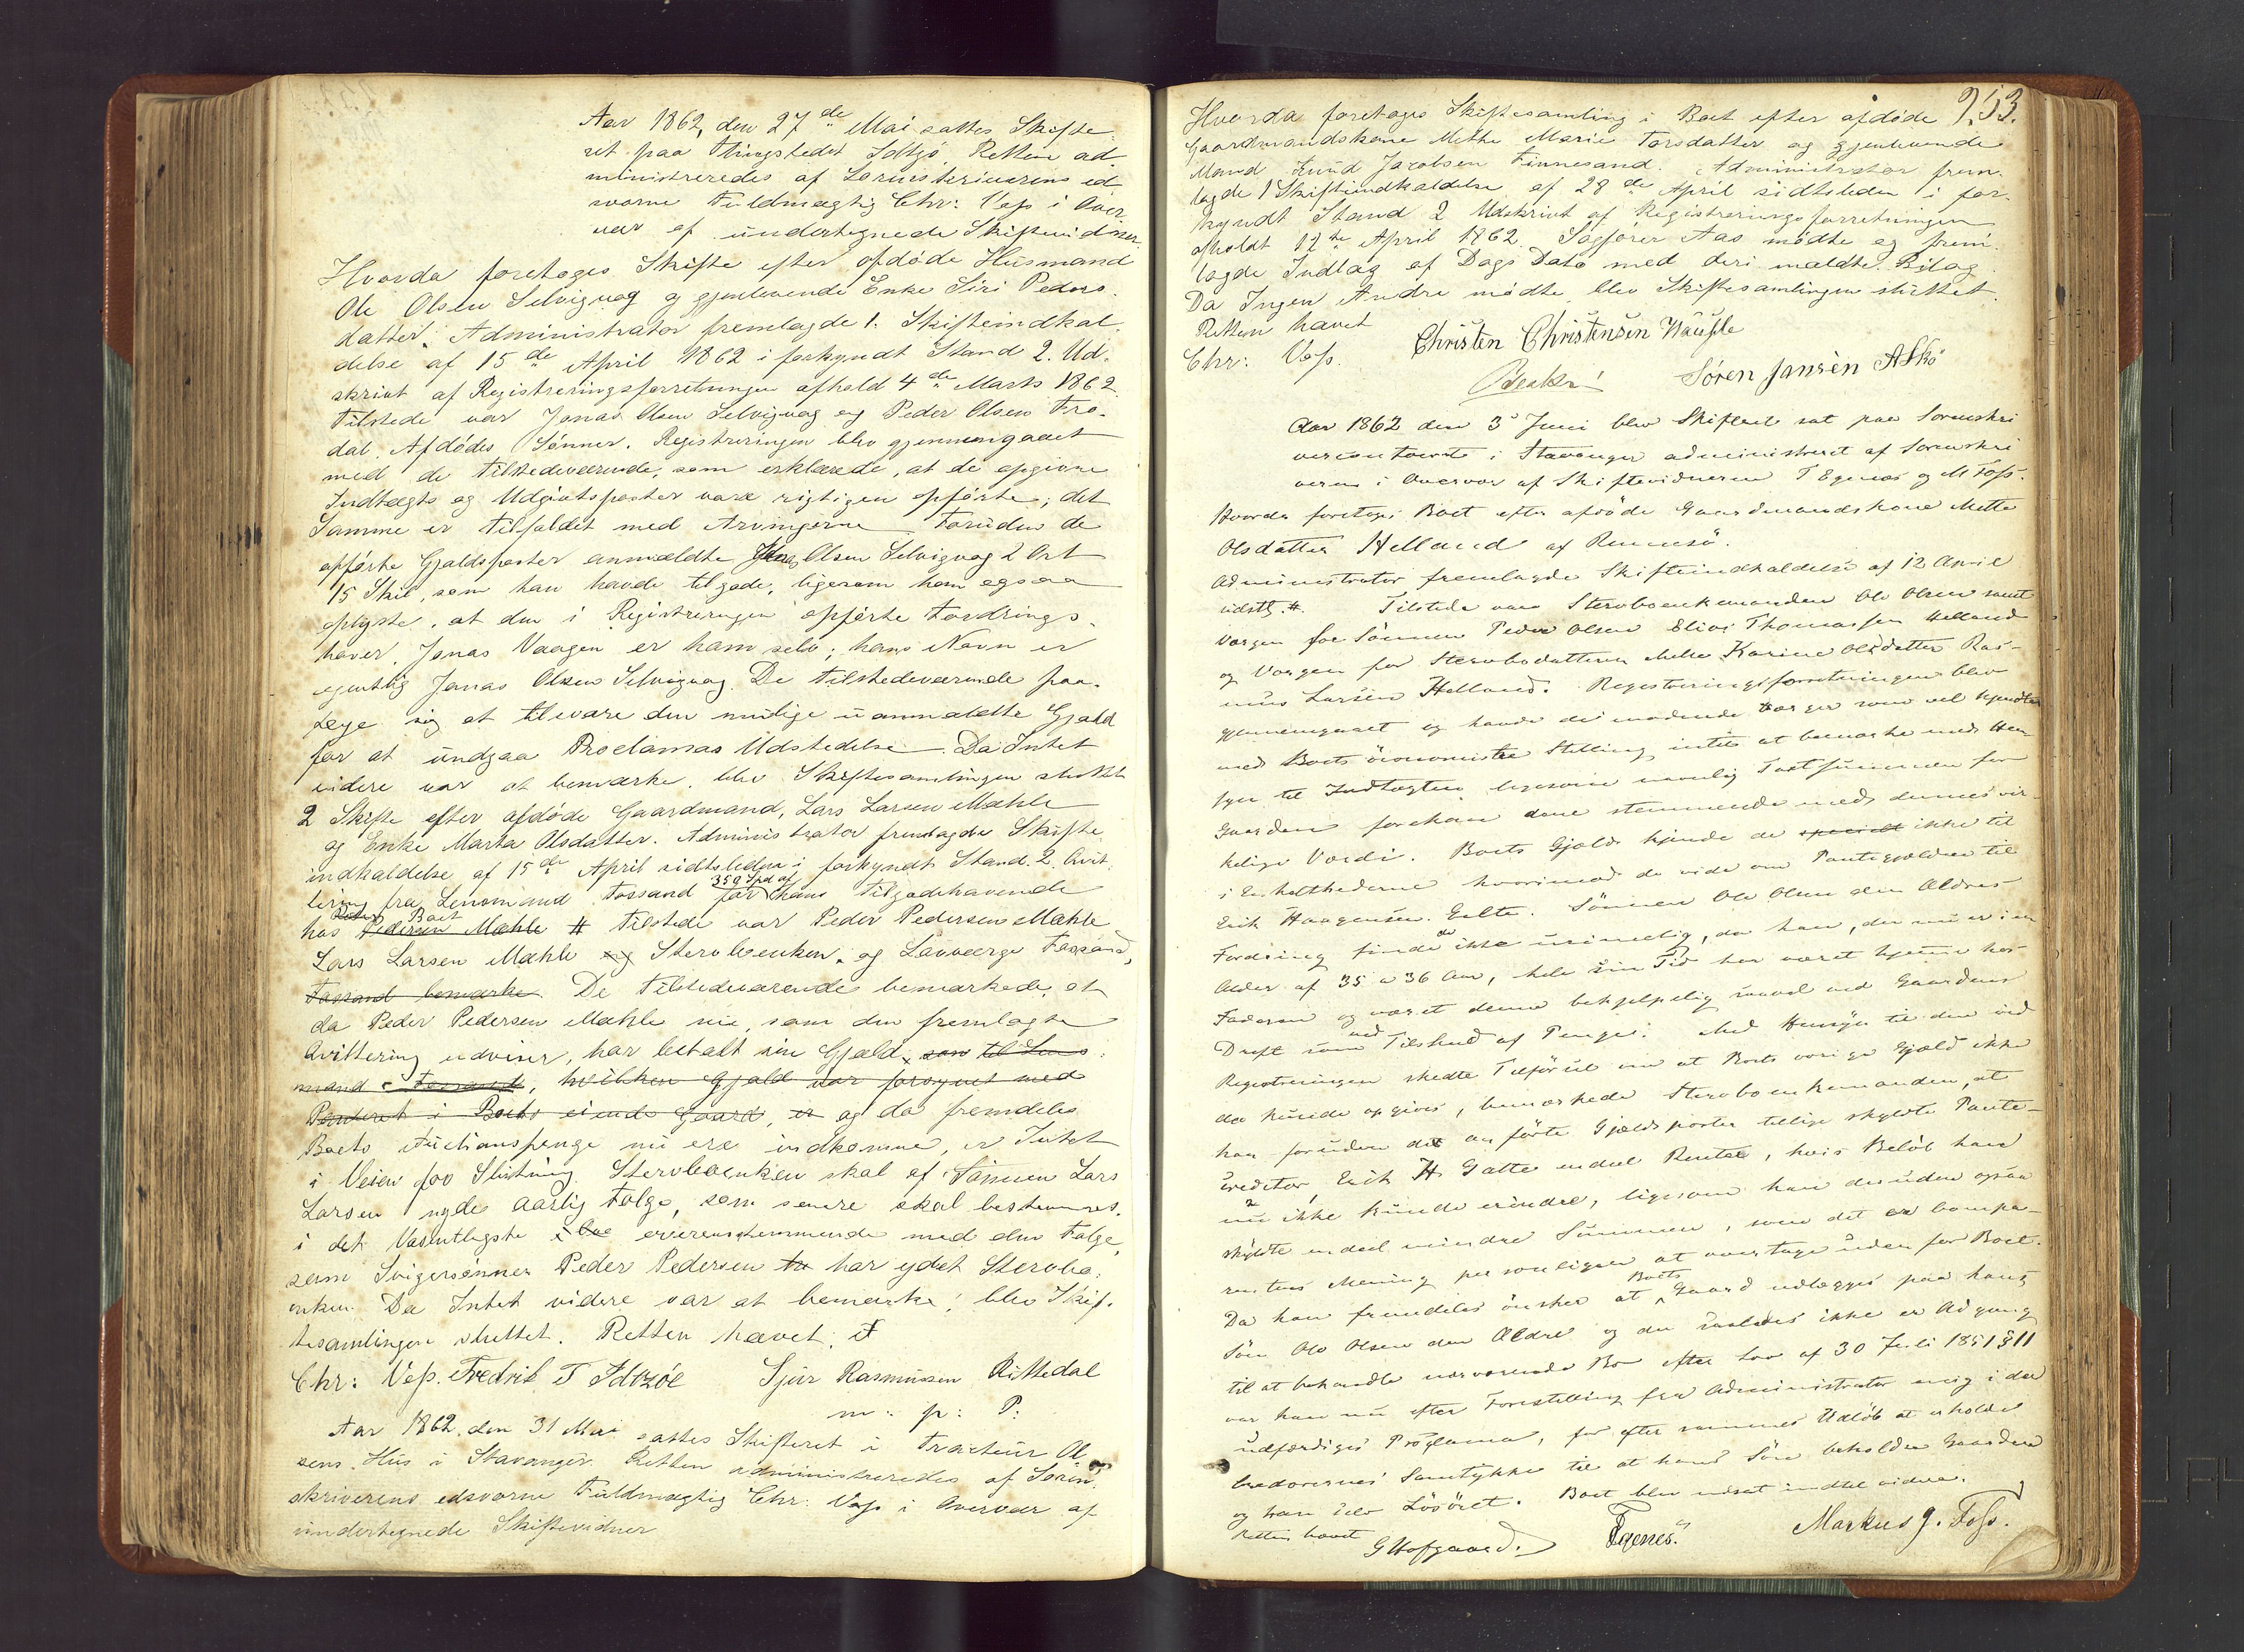 Aar 1862, den 27de Mai sattes Skifte
ret paa Thingstedet Idtzö. Retten ad
ministreredes af Sorenskriverens ed
svorne Fuldmægtig Chr: Voss i Over
vær af undertegnede Skiftevidner.
Hvorda foretoges Skifte efter afdöde Husmand
Ole Olsen Selvigvag og gjenlevende Enke Siri Peders
datter. Administrator fremlagde 1. Skifteindkal
delse af 15de April 1862 i forkyndt Stand 2. Ud
skrivt af Registreringsforretningen afhold 4de Marts 1862.
Tilstede var Jonas Olsen Selvigvag og Peder Olsen Fro-
dal. Afdödes Sönner. Registreringen blev gjennemgaaet
med de Tilstedeværende, som erklærede, at de opgivne
Indtægts og Udgivtsposter vare rigtigen opförte; det
Samme er Tilfældet med Arvingerne Foruden de
opförte Gjældsposter anmældte Jonas Olsen Selvigvag 2 Ort
15 Skil, som han havde tilgode, ligesom han ogsaa
oplyste, at den i Registreringen opförte Fordrings-
haver, Jonas Vaagen er ham selv; hans Navn er
egentlig Jonas Olsen Selvigvag. De tilstedeværende paa-
lege sig at tilsvare den mulige uanmældte Gjæld
for at undgaa Proclamas Udstedelse. Da Intet
videre var at bemærke, blev Skiftesamlingen sluttet
2 Skifte efter afdöde Gaardmand, Lars Larsen Mæhle
og Enke Marta Olsdatter. Administrator fremlagde Skifte
indkaldelse af 15de April sidtsleden i forkyndt Stand. 2. Qvit
tering fra Lensmand Fossand for 359 Spd af hans Tilgodehavende
hos Pedersen Mæhle Boet # Tilstede var Peder Pedersen Mæhle
Lars Larsen Mæhle og Stervboenken, og Lavværge Fossand,
Fossand bemærke. De Tilstedeværende bemærkede, at
da Peder Pedersen Mæhle nu, som den fremlagte
Qvittering udviser, har betalt sin Gjæld, som til Lens
mand Fossand, hvilken Gjæld var forsynet med
Panteret i Boets eiende Gaard, er og da fremdeles
Boets Auctionspenge nu ere indkomne, er Intet
i Veien for Slutning. Stervboenken skal af Sönnen Lars
Larsen nyde aarlig Folge, som senere skal bestemmes.
i det Væsentligste overensstemmende med den Folge,
som Svigersönnen Peder Pedersen har ydet Stervbo
enken. Da Intet videre var at bemærke, blev Skif-
tesamlingen sluttet. Retten hævet.
Chr: Voss. Fredrik T Idtzöe Sjur Rasmussen Rittedal
m: p: P:
Aar 1862, den 31 Mai sattes Skifteret i Tracteur Ol
sens Hus i Stavanger. Retten administreredes af Soren
skriverens edsvorne Fuldmægtig Chr: Voss i Overvær af
undertegnede Skiftevidner
253.
Hvorda foretoges Skiftesamling i Boet efter afdöde
Gaardmandskone Methe Marie Torsdatter og gjenlevende
Mand Knud Jacobsen Finnesand. Administrator frem-
lagde 1 Skifteindkaldelse af 28de April sidtsleden i for-
kyndt Stand 2 Udskrivt af Registreringsforretningen
afholdt 12te April 1862. Sagförer Aas mödte og frem-
lagde Indlæg af Dags Dato med deri mældte Bilag.
Da Ingen Andre mödte, blev Skiftesamlingen sluttet.
Retten hævet
Chr: Voss. Christen Christensen
Sören Jansen Askö
Aar 1862 den 3 Juni blev Skifteret sat paa Sorenskri
vercontoret i Stavanger administreret af Sorenskri
veren i Overvær af Skiftevidnerne T Egenes og M Foss.
Hvorda foretoges Boet efter afdöde Gaardmandskone Mette
Olsdatter Helland af Rennesö.
Administrator fremlagde Skifteindkaldelse af 12 April
sidstl. #. Tilstede var Stervboenkemanden Ole Olsen samt
Værgen for Sönnen Peder Olsen Elias Thomassen Helland
og Værgen for Stervbodatteren Karine Olsdatter Ras-
mus Larsen Helland. Registreringsforretningen blev
gjennemgaaet og havde de mödende Værger som vel kjendte
med Boets öconomiske Stilling intet at bemærke med Hen
syn til Indtægten ligesom navnlig Taxtsummen for
Gaarden forekom dem stemmende med dennes vir-
kelige Værdi. Boets Gjæld kjende de specielt ikke til
i Enkelthederne hvorimod de vide om Pantegjælden til
Erik Haagensen Galte. Sönnen Ole Olsen den Ældres
Fordring finde de ikke urimelig, da han, der nu er i en
Alder af 35 a 36 Aar, hele sin Tid har været hjemme hos
Faderen og været denne behjelpelig saavel ved Gaardens
Drift som ved Tilskud af Penge. Med Hensyn til den ved
Registreringen skedte Tilförsel om at Boets övrige Gjæld ikke
da kunde opgives, bemærkede Stervboenkemanden, at
han foruden de anförte Gjældsposter tillige skyldte Pante-
creditor, Erik H. Galte endeel Renter, hvis Belöb han
nu ikke kunde erindre, ligesom han desuden ogsaa
skyldte endeel mindre Summer, som det er Compa-
rentens Mening personligen at overtage uden for Boet.
Da han fremdeles önsker at Boets Gaard udlægges paa hans
Sön Ole Olsen den Ældre og der saaledes ikke er Adgang
til at behandle nærværende Bo efter Lov af 30 Juli 1851 § 11
var han nu efter Forestilling fra Administrator enig i der
udfærdiges Proglama, for efter sammes Udlöb at erholde
Creditorernes Samtykke til at hans Sön beholder Gaarden
og han selv Lösöret. Boet blev udsat indtil videre.
Retten hævet
G Hofgaard. Egenes. Markus J. Foss.